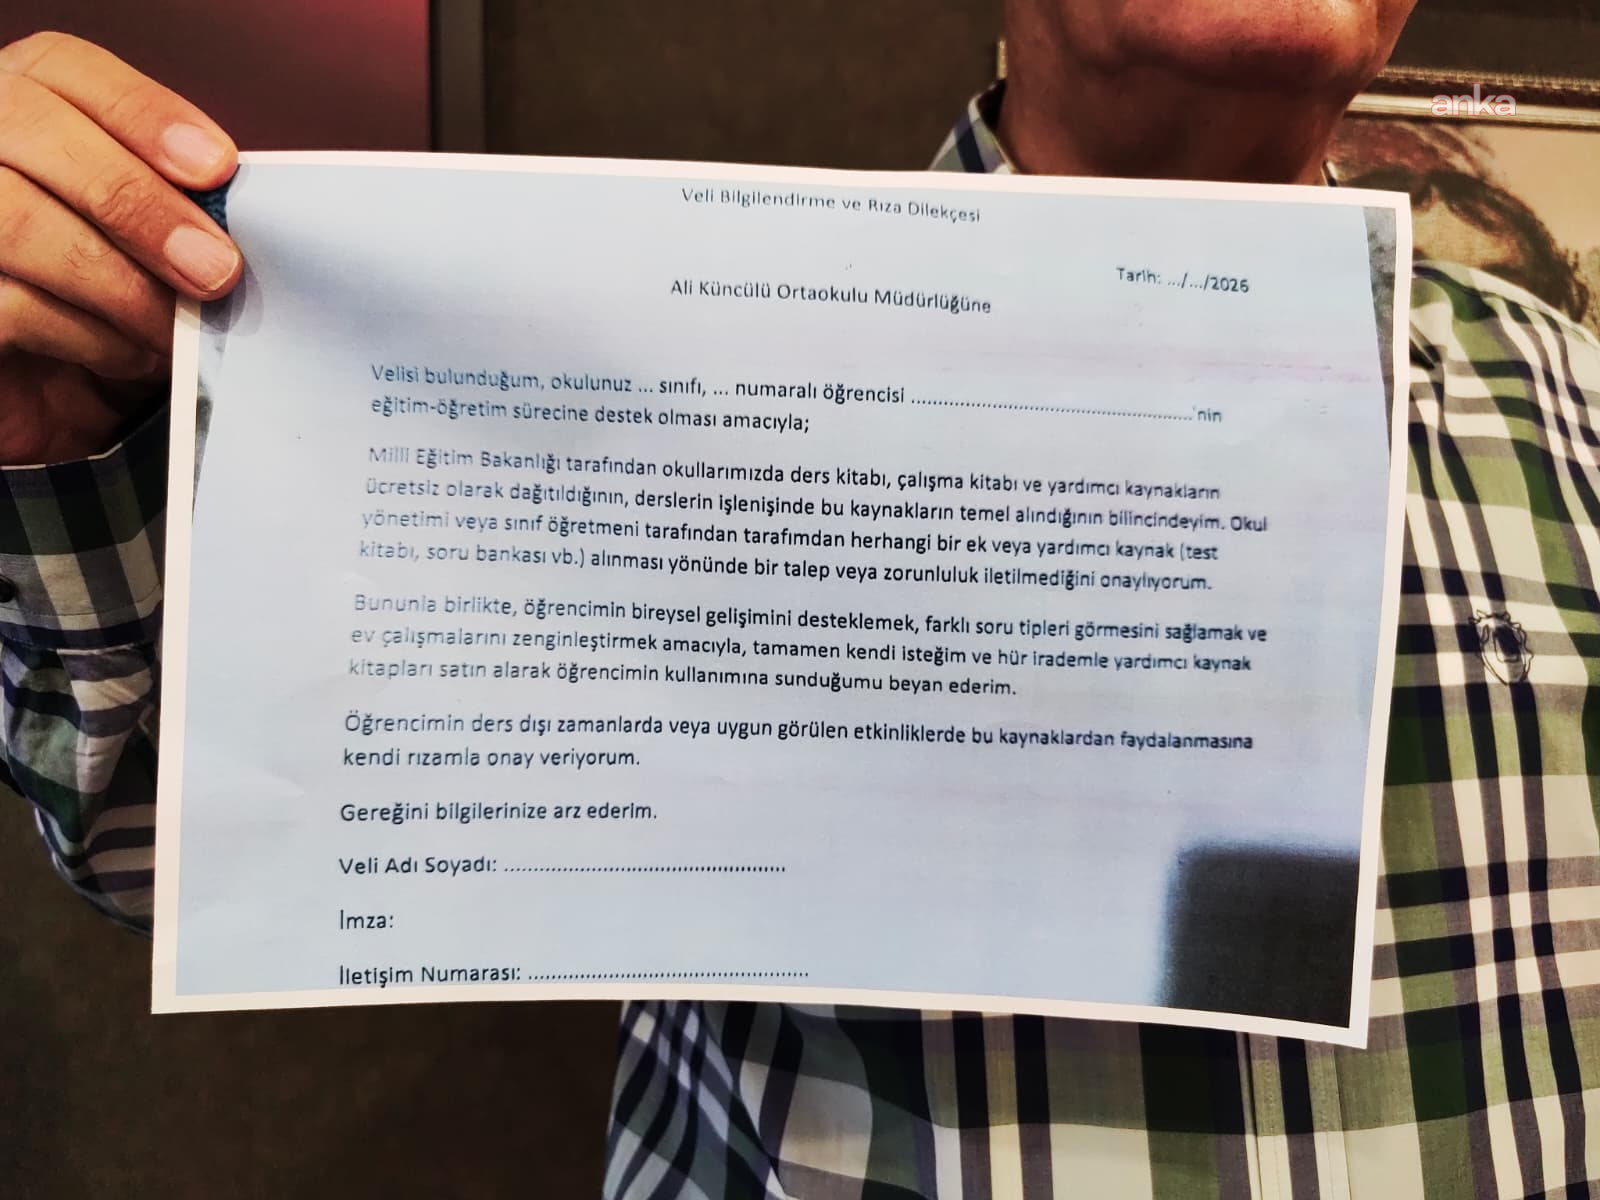 anka
Veli Bilgilendirme ve Rıza Dilekçesi
Tarih: .../.../2026
Ali Küncülü Ortaokulu Müdürlüğüne
Velisi bulunduğum, okulunuz ... sınıfı, ... numaralı öğrencisi ....................................................'nin
eğitim-öğretim sürecine destek olması amacıyla;
Milli Eğitim Bakanlığı tarafından okullarımızda ders kitabı, çalışma kitabı ve yardımcı kaynakların
ücretsiz olarak dağıtıldığının, derslerin işlenişinde bu kaynakların temel alındığının bilincindeyim. Okul
yönetimi veya sınıf öğretmeni tarafından tarafımdan herhangi bir ek veya yardımcı kaynak (test
kitabı, soru bankası vb.) alınması yönünde bir talep veya zorunluluk iletilmediğini onaylıyorum.
Bununla birlikte, öğrencimin bireysel gelişimini desteklemek, farklı soru tipleri görmesini sağlamak ve
ev çalışmalarını zenginleştirmek amacıyla, tamamen kendi isteğim ve hür irademle yardımcı kaynak
kitapları satın alarak öğrencimin kullanımına sunduğumu beyan ederim.
Öğrencimin ders dışı zamanlarda veya uygun görülen etkinliklerde bu kaynaklardan faydalanmasına
kendi rızamla onay veriyorum.
Gereğini bilgilerinize arz ederim.
Veli Adı Soyadı: ................................................
İmza:
İletişim Numarası: ................................................